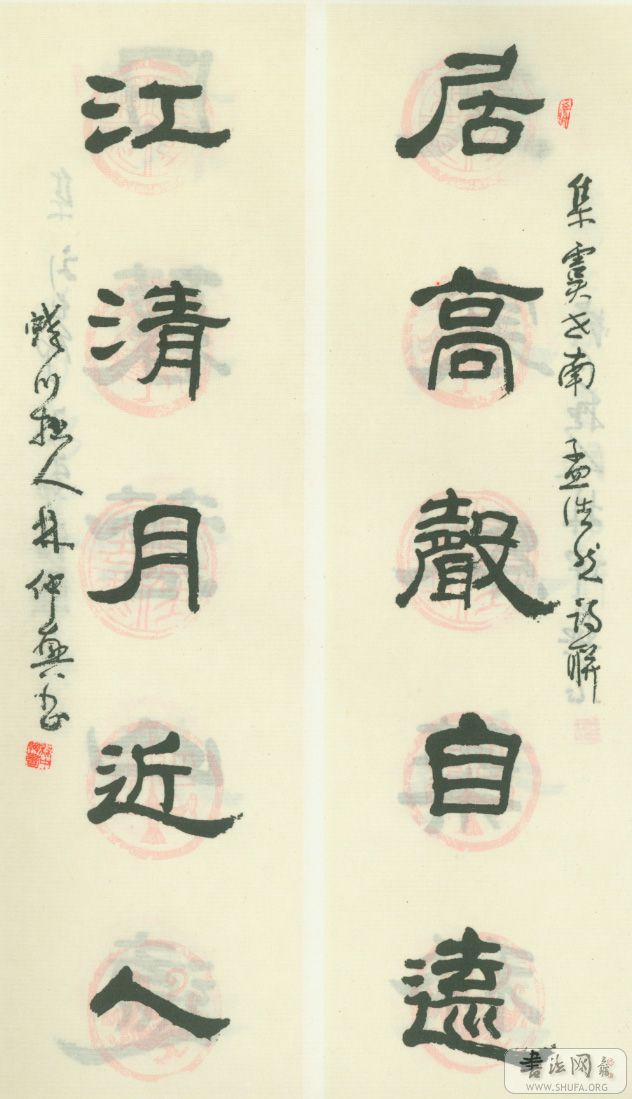 居高聲自遠
集虞世南孟浩然詩聯
江清月近人
林仲興書
書法网
WWW.SHUFA.ORG